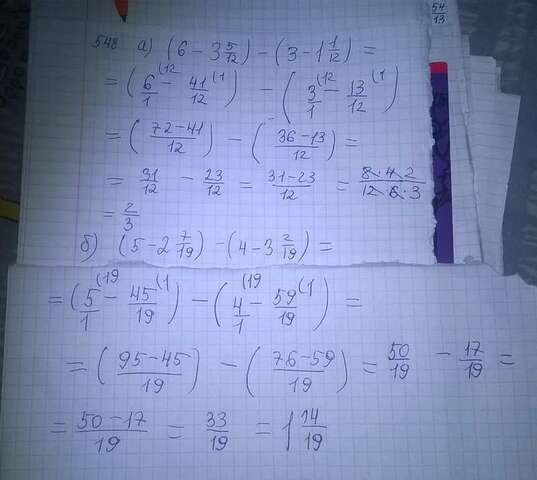 548 а) (6 - 3 5/12) - (3 - 1 1/12) =
= (6/1 (12 - 41/12 (1) - (3/1 (12 - 13/12 (1)
= (72-41/12) - (36-13/12) =
= 31/12 - 23/12 = 31-23/12 = 8 4 2/12 6 3
= 2/3
б) (5 - 2 7/19) - (4 - 3 2/19) =
= (5/1 (19 - 45/19 (1) - (4/1 (19 - 59/19 (1) =
= (95-45/19) - (76-59/19) = 50/19 - 17/19 =
= 50-17/19 = 33/19 = 1 14/19
54/13